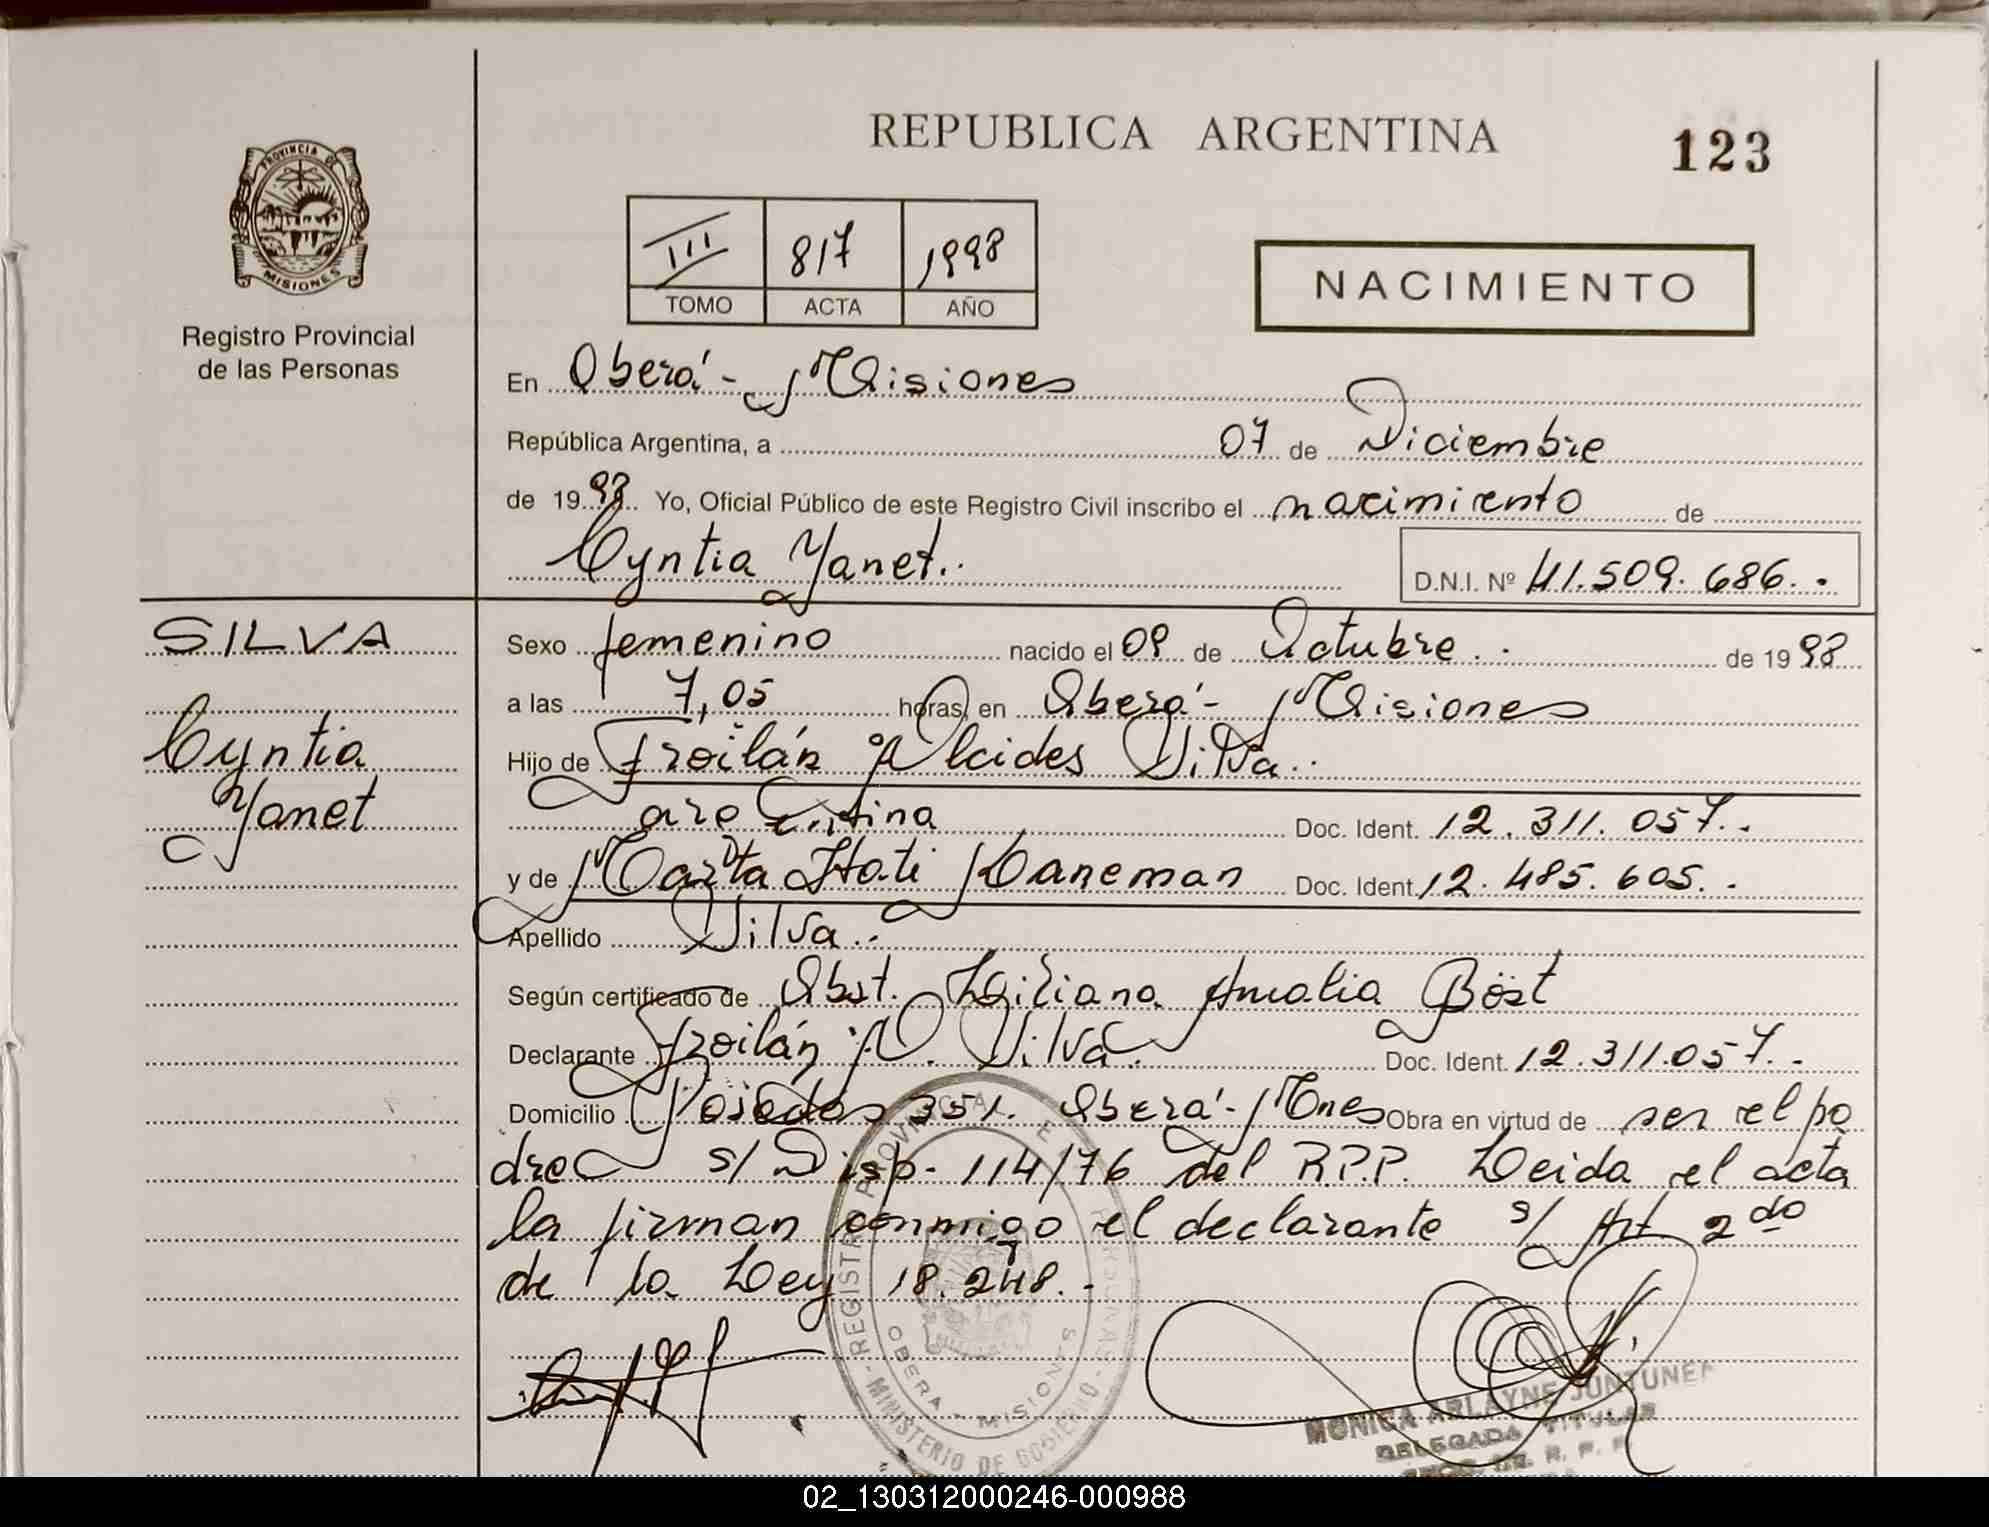 PROVINCIA DE
MISIONES
Registro Provincial
de las Personas
REPUBLICA ARGENTINA
123
III 817 1998
TOMO ACTA AÑO
NACIMIENTO
En Oberá - Misiones
República Argentina, a 07 de Diciembre
de 19 98 Yo, Oficial Público de este Registro Civil inscribo el nacimiento de
Cyntia Yanet.. D.N.I. Nº 41.509.686..
SILVA
Cyntia
Yanet
Sexo femenino nacido el 09 de Octubre.. de 19 98
a las 7,05 horas, en Oberá - Misiones
Hijo de Froilán Alcides Silva..
argentina Doc. Ident. 12.311.057..
y de Marta Itati Kaneman Doc. Ident. 12.485.605..
Apellido Silva..
Según certificado de Obst. Liliana Amalia Böst
Declarante Froilán A. Silva. Doc. Ident. 12.311.057..
Domicilio Posadas 351. Oberá - Mnes Obra en virtud de ser el pa
dre s/ Disp. 114/76 del R.P.P. Leida el acta
la firman conmigo el declarante s/ Art 2do
de la Ley 18.248.-
REGISTRO PROVINCIAL DE LAS PERSONAS
MINISTERIO DE GOBIERNO
OBERA - MISIONES
MONICA ARLAYNE JUNTUNEN
DELEGADA TITULAR
02_130312000246-000988